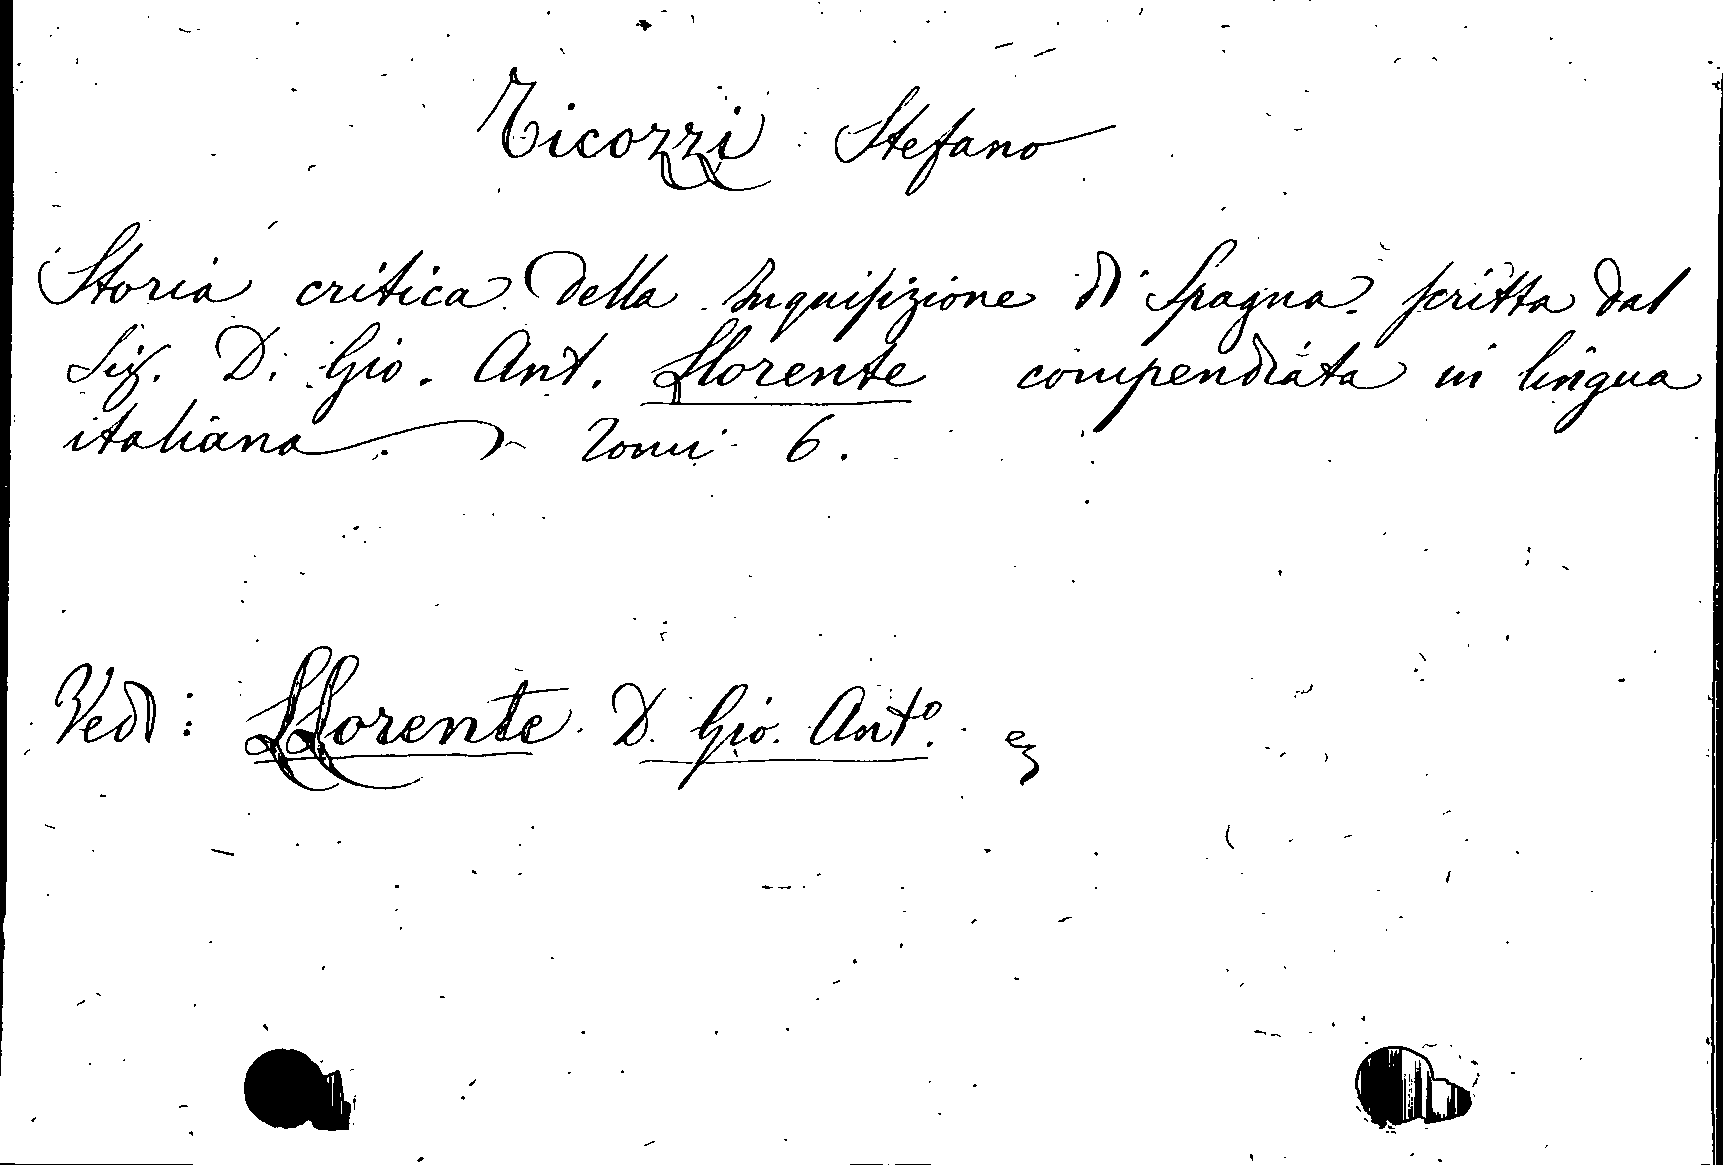 Ticozzi Stefano
Storia critica della Inquisizione di Spagna. scritta dal
Sig. D. Gio. Ant. Llorente compendiata in lingua
italiana. Tomi 6.
Vedi: Llorente D. Gio. Antº.